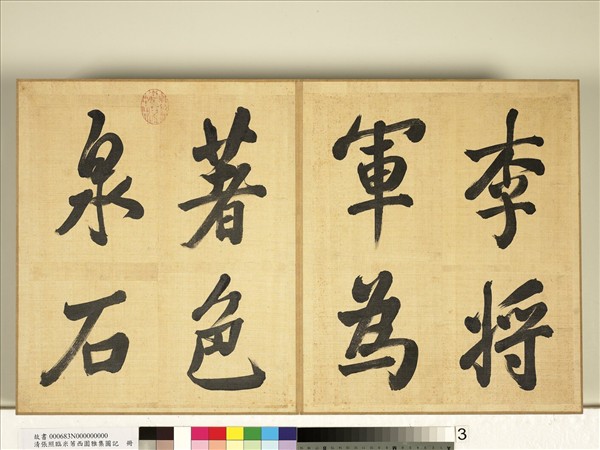 李將
軍為
著色
泉石
故書 000683N000000000
清張照臨米芾西園雅集圖記 冊
3